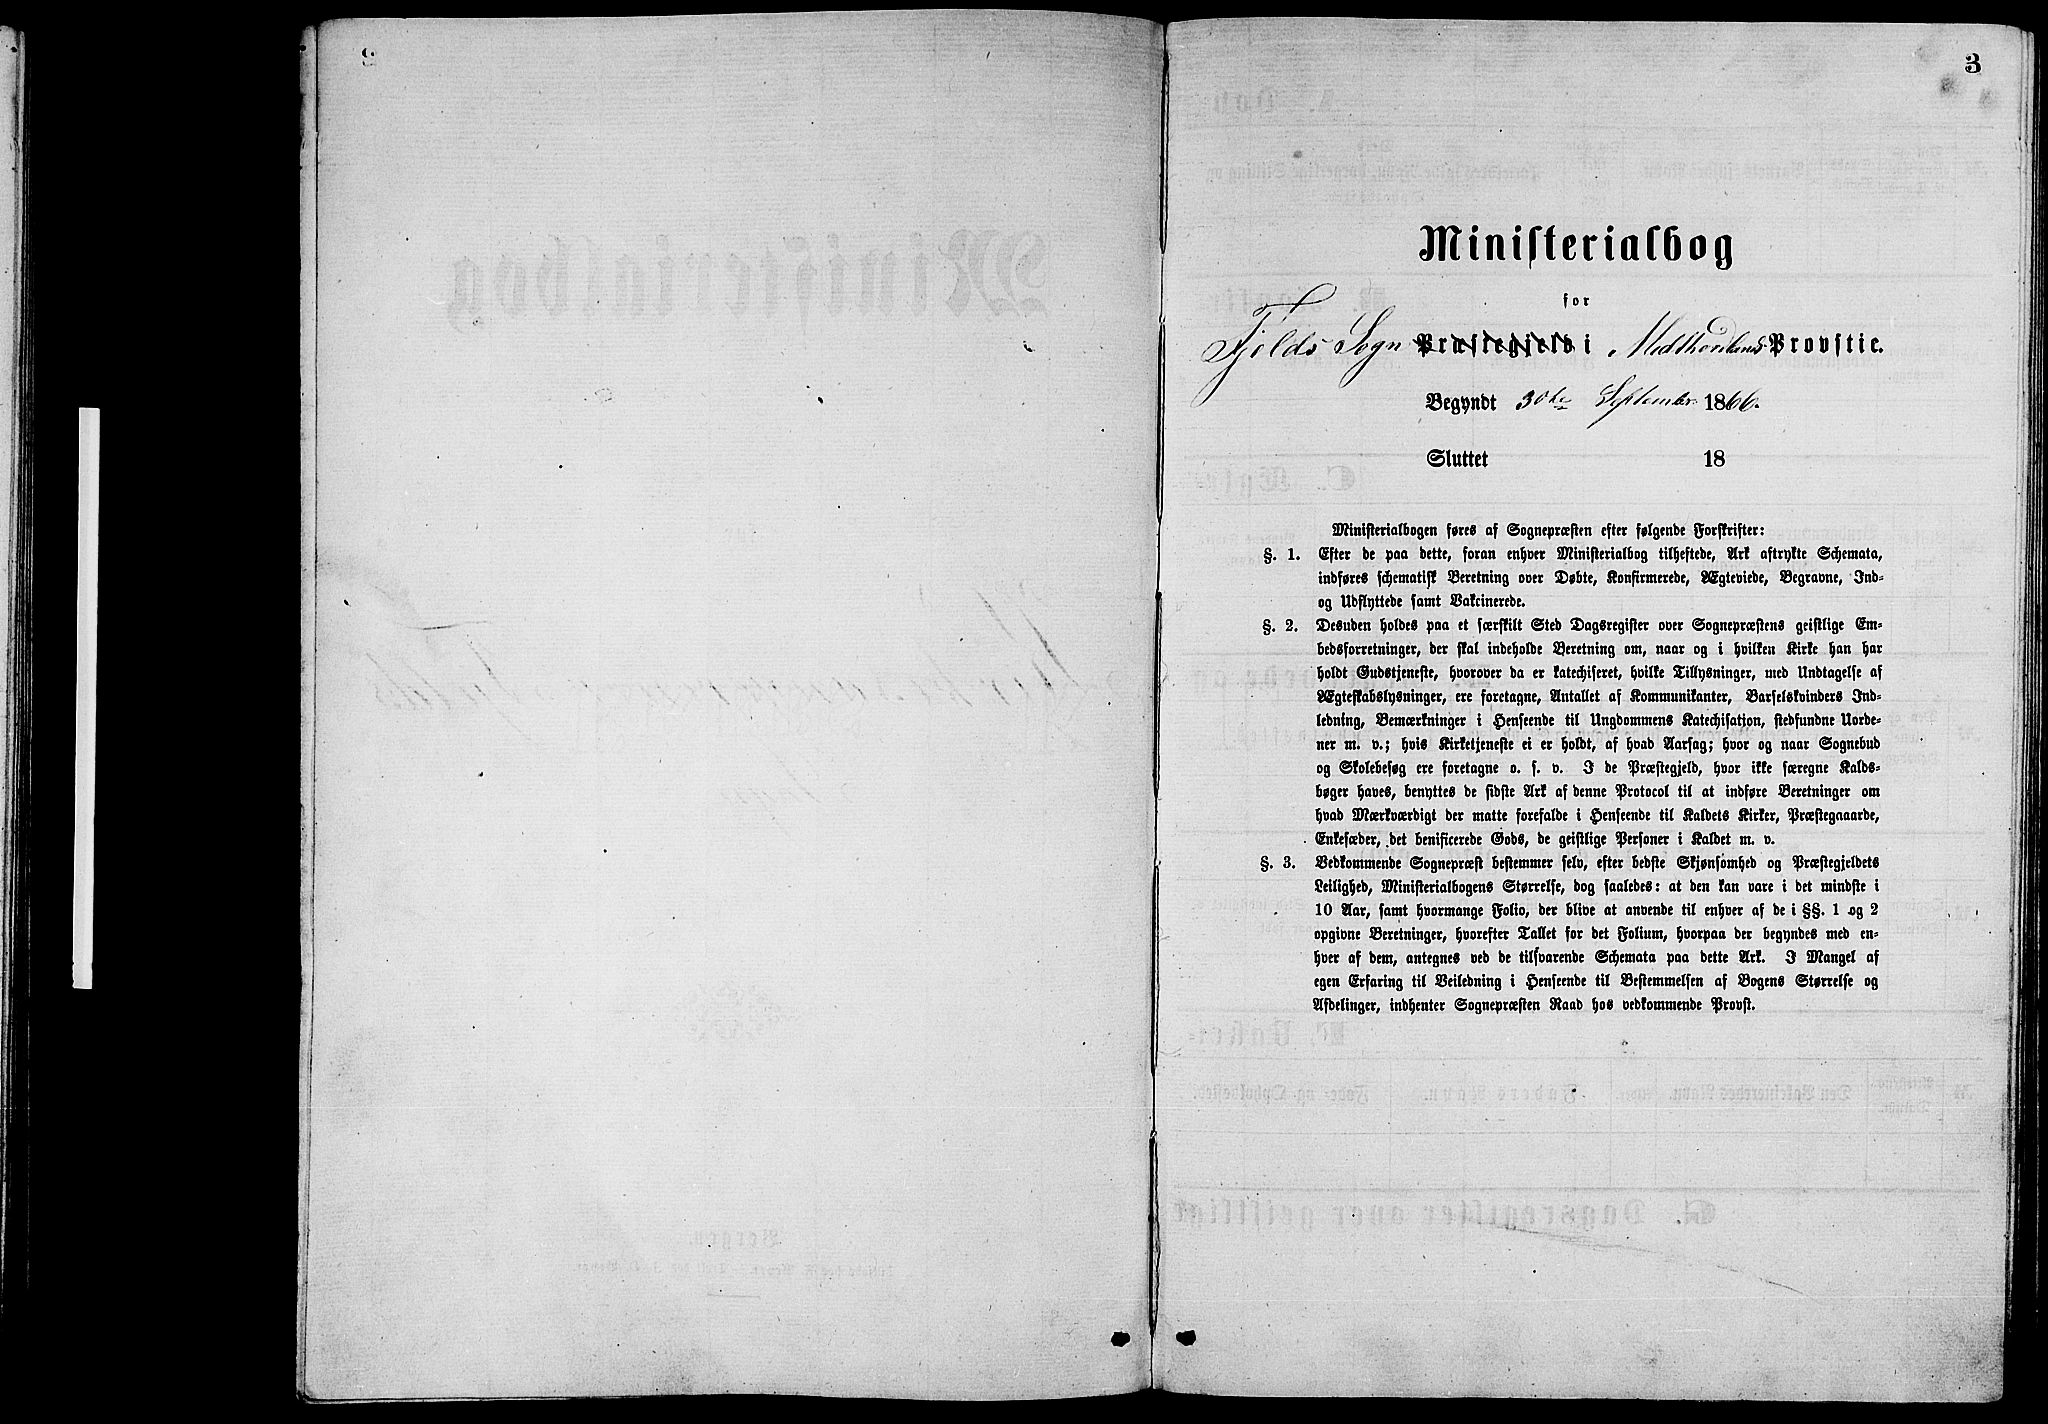 3
Ministerialbog
for
Fjelds Sogn Præstegjeld i Midthordlands Provstie.
Begyndt 30te September 1866.
Sluttet 18
Ministerialbogen føres af Sognepræsten efter følgende Forskrifter:
§. 1. Efter de paa dette, foran enhver Ministerialbog tilheftede, Ark aftrykte Schemata,
indføres schematisk Beretning over Døbte, Konfirmerede, Ægteviede, Begravne, Ind-
og Udflyttede samt Vakcinerede.
§. 2. Desuden holdes paa et særskilt Sted Dagsregister over Sognepræstens geistlige Em-
bedsforretninger, der skal indeholde Beretning om, naar og i hvilken Kirke han har
holdt Gudstjeneste, hvorover da er katechiseret, hvilke Tillysninger, med Undtagelse af
Ægteskabslysninger, ere foretagne, Antallet af Kommunikanter, Barselskvinders Ind-
ledning, Bemærkninger i Henseende til Ungdommens Katechisation, stedfundne Uorde-
ner m. v.; hvis Kirketjeneste ei er holdt, af hvad Aarsag; hvor og naar Sognebud
og Skolebesøg ere foretagne o. s. v. I de Præstegjeld, hvor ikke særegne Kalds-
bøger haves, benyttes de sidste Ark af denne Protocol til at indføre Beretninger om
hvad Mærkværdigt der matte forefalde i Henseende til Kaldets Kirker, Præstegaaarde,
Enkesæder, det benificerede Gods, de geistlige Personer i Kaldet m. v.
§. 3. Vedkommende Sognepræst bestemmer selv, efter bedste Skjønsomhed og Præstegjeldets
Leilighed, Ministerialbogens Størrelse, dog saaledes: at den kan vare i det mindste i
10 Aar, samt hvormange Folio, der blive at anvende til enhver af de i §§. 1 og 2
opgivne Beretninger, hvorefter Tallet for det Folium, hvorpaa der begyndes med en-
hver af dem, antegnes ved de tilsvarende Schemata paa dette Ark. I Mangel af
egen Erfaring til Veiledning i Henseende til Bestemmelsen af Bogens Størrelse og
Afdelinger, indhenter Sognepræsten Raad hos vedkommende Provst.